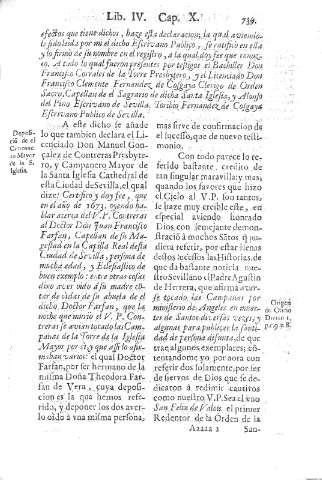 Lib. IV. Cap. X. 739.
efectos que tiene dichos, haze esta declaracion, la qual aviendo-
le sido leida por mi el dicho Escrivano Publico, se ratificò en ella
y lo firmò de su nombre en el registro, à la qual doy fee que conoz-
co. A todo lo qual fueron presentes por testigos el Bachiller Don
Francisco Corrales de la Torre Presbytero, y el Licenciado Don
Francisco Clemente Fernandez de Cosgaya Clerigo de Orden
Sacro, Capellanes del Sagrario de dicha Santa Iglesia, y Alonso
del Pino Escrivano de Sevilla. Toribio Fernandez de Cosgaya
Escrivano Publico de Sevilla.
Deposi-
cio de el
Campane
ro Mayor
de la S.
Iglesia.
A esto dicho se añade
lo que tambien declara el Li-
cenciado Don Manuel Gon-
çalez de Contreras Presbyte-
ro, y Campanero Mayor de
la Santa Iglesia Cathedral de
esta Ciudad de Sevilla, el qual
dize: Certifico y doy fee, que
en el año de 1673. oyendo ha-
blar acerca del V.P. Contreras
al Doctor Don Juan Francisco
Farfan, Capellan de su Ma-
gestad en la Capilla Real desta
Ciudad de Sevilla, persona de
mucha edad, y Eclesiastico de
buen exemplo: entre otras cosas
dixo aver oido à su madre co-
tar de oidas de su abuela de el
dicho Doctor Farfan, que la
noche que muriò el V. P. Con-
treras se avian tocado las Cam-
panas de la Torre de la Iglesia
Mayor por sì, que assi lo afir-
maban varios: el qual Doctor
Farfan, por ser hermano de la
misma Doña Theodora Far-
fan de Vera, cuya deposi-
cion es la que hemos refe-
rido, y deponer los dos aver-
lo oido à una misma persona,
mas sirve de confirmacion de
el sucesso, que de nuevo testi-
monio.
Con todo parece lo re-
ferido bastante, credito de
tan singular maravilla; mas,
quando los favores que hizo
el Cielo al V. P. son tantos,
se haze muy creible este, en
especial aviendo honrado
Dios con semejante demons-
tracion à muchos Sãtos q̃ pu-
diera referir, por estar llenas
destos sucessos las Historias, de
que dà bastante noticia nues-
tro Sevillano el Padre Agustin
de Herrera, que afirma aver-
se tocado las Campanas por
ministerio de Angeles en muer-
tes de Santos diversas vezes, y
algunas para publicar la santi-
dad de persona difunta, de que
trae algunos exemplares; cõ-
tentandome yo por aora con
referir dos solamente, por ser
de siervos de Dios que se de-
dicaron à redimir cautivos
como nuestro V.P. Sea el uno
San Felix de Valois el primer
Redentor de la Orden de la
Origen
de Oficio
Divino 1.
p. c. 9. n. 8.
Aaaaa 2 San-